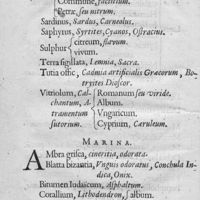 Commune, factitium.
Petræ, seu nitrum.
Sardinus, Sardus, Carneolus.
Saphyrus, Syrtites, Cyanos, Ostracius.
Sulphur citreum, flavum.
vivum.
Terra sigillata, Lemnia, Sacra.
Tutia offic, Cadmia artificialis Græcorum, Bo-
tryites Dioscor.
Vitriolum, Cal- Romanum seu viride.
chantum, A- Album.
tramentum Vngaricum.
sutorium. Cyprium, Cæruleum.
MARINA.
AMbra grisea, cineritia, odorata.
Blatta bizantia, Vnguis odoratus, Conchula In-
dica, Onix.
Bitumen Iudaicum, Asphaltum.
Corallium, Lithodendron, album.